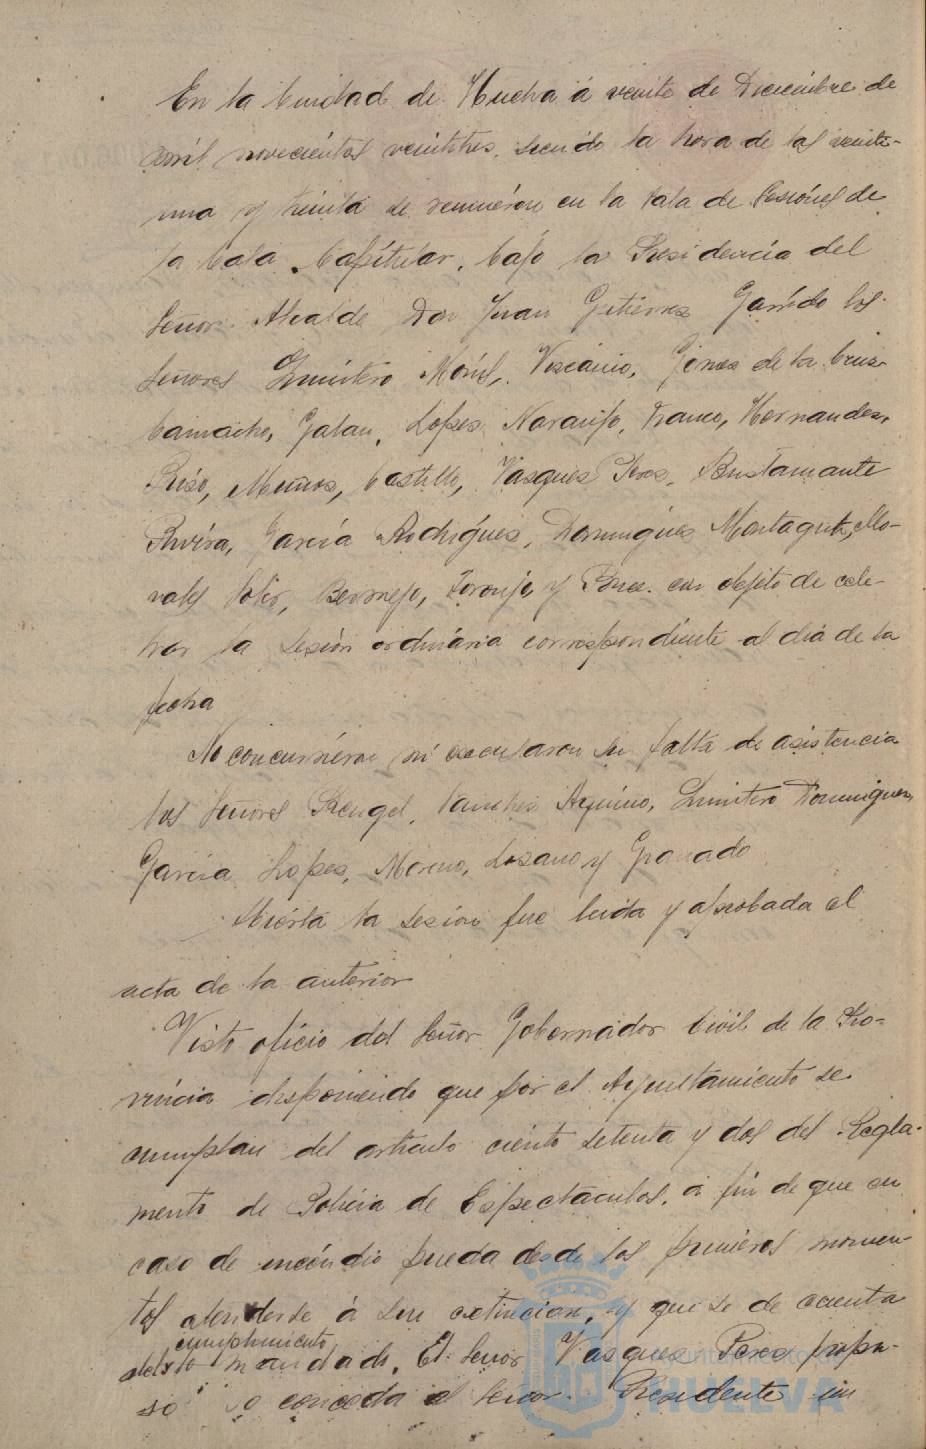 En la Ciudad de Huelva á veinte de Diciembre de
mil novecientos veintitres, siendo la hora de las veinti-
una y treinta se reunieron en la Sala de Sesiónes de
la Casa Capitular, bajo la Presidencia del
Señor Alcalde Don Juan Gutierrez Garrido los
Señores Quintero Mórís, Vizcaino, Gómez de la Cruz
Camacho, Galan, López Naranjo, Franco, Hernandez,
Muñoz, Castillo, Vázquez Pérez, Bustamante
Rivéra, García Rodríguez, Domínguez Mo-
rales Bermejo, Toronjo y Ponce con objéto de cele-
brar la sesión ordinária correspondiente al dia de la
fecha
No concurriéron ni excusaron su falta de asistencia
los Señores Rengel, Sanchez Aquino, Quintero Dominguez,
García López, Moreno, Lozano y Granado
Abiérta la sesion fue leida y aprobada el
acta de la anterior
Visto oficio del Señor Gobernador Civil de la Pro-
vincia disponiendo que por el Ayuntamiento se
cumplan del articulo ciento setenta y dos del Regla-
mento de Policia de Espectáculos, a fin de que en
caso de incéndio pueda desde los priméros momen-
tos atenderse á su extincion, y que se de cuenta
cumplimiento
del lo mandado, El Señor Vázquez Perez propu-
so se conceda al Señor Presidente un
Ayuntamiento de
HUELVA